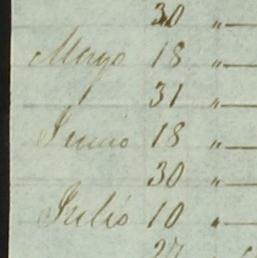 30 " —
Mayo 18 " —
31 " —
Junio 18 " —
30 " —
Julio 10 " —
27 "